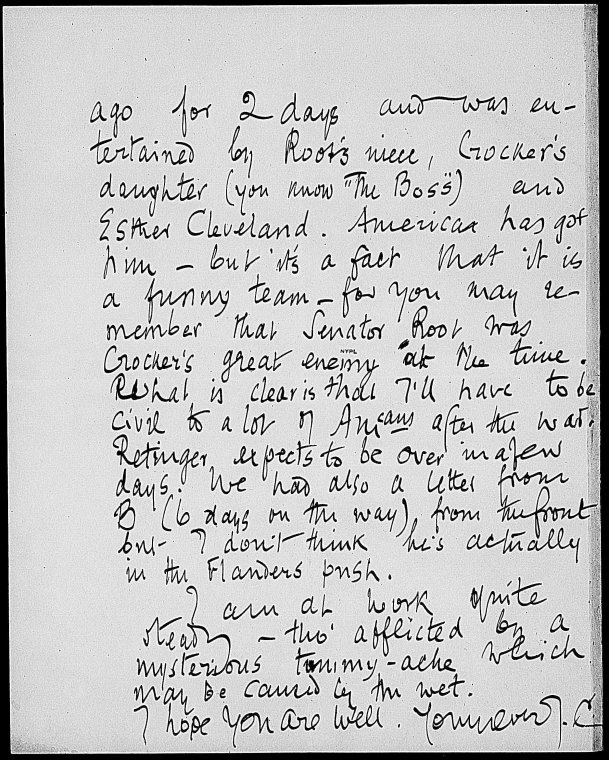 ago for 2 days and was en-
tertained by Root's niece, Crocker's
daughter (you know "The Boss") and
Esther Cleveland. American has got
him – but it's a fact that it is
a funny team – for you may re-
member that Senator Root was
Crocker's great enemy at the time.
NYPL
What is clear is that I'll have to be
civil to a lot of Amcans after the war.
Retinger expects to be over in a few
days. We had also a letter from
B (6 days on the way) from the front
but I don't think he's actually
in the Flanders push.
I am at work quite
steady – tho' afflicted by a
mysterious tummy-ache which
may be caused by the wet.
I hope you are well. Yours ever J. C